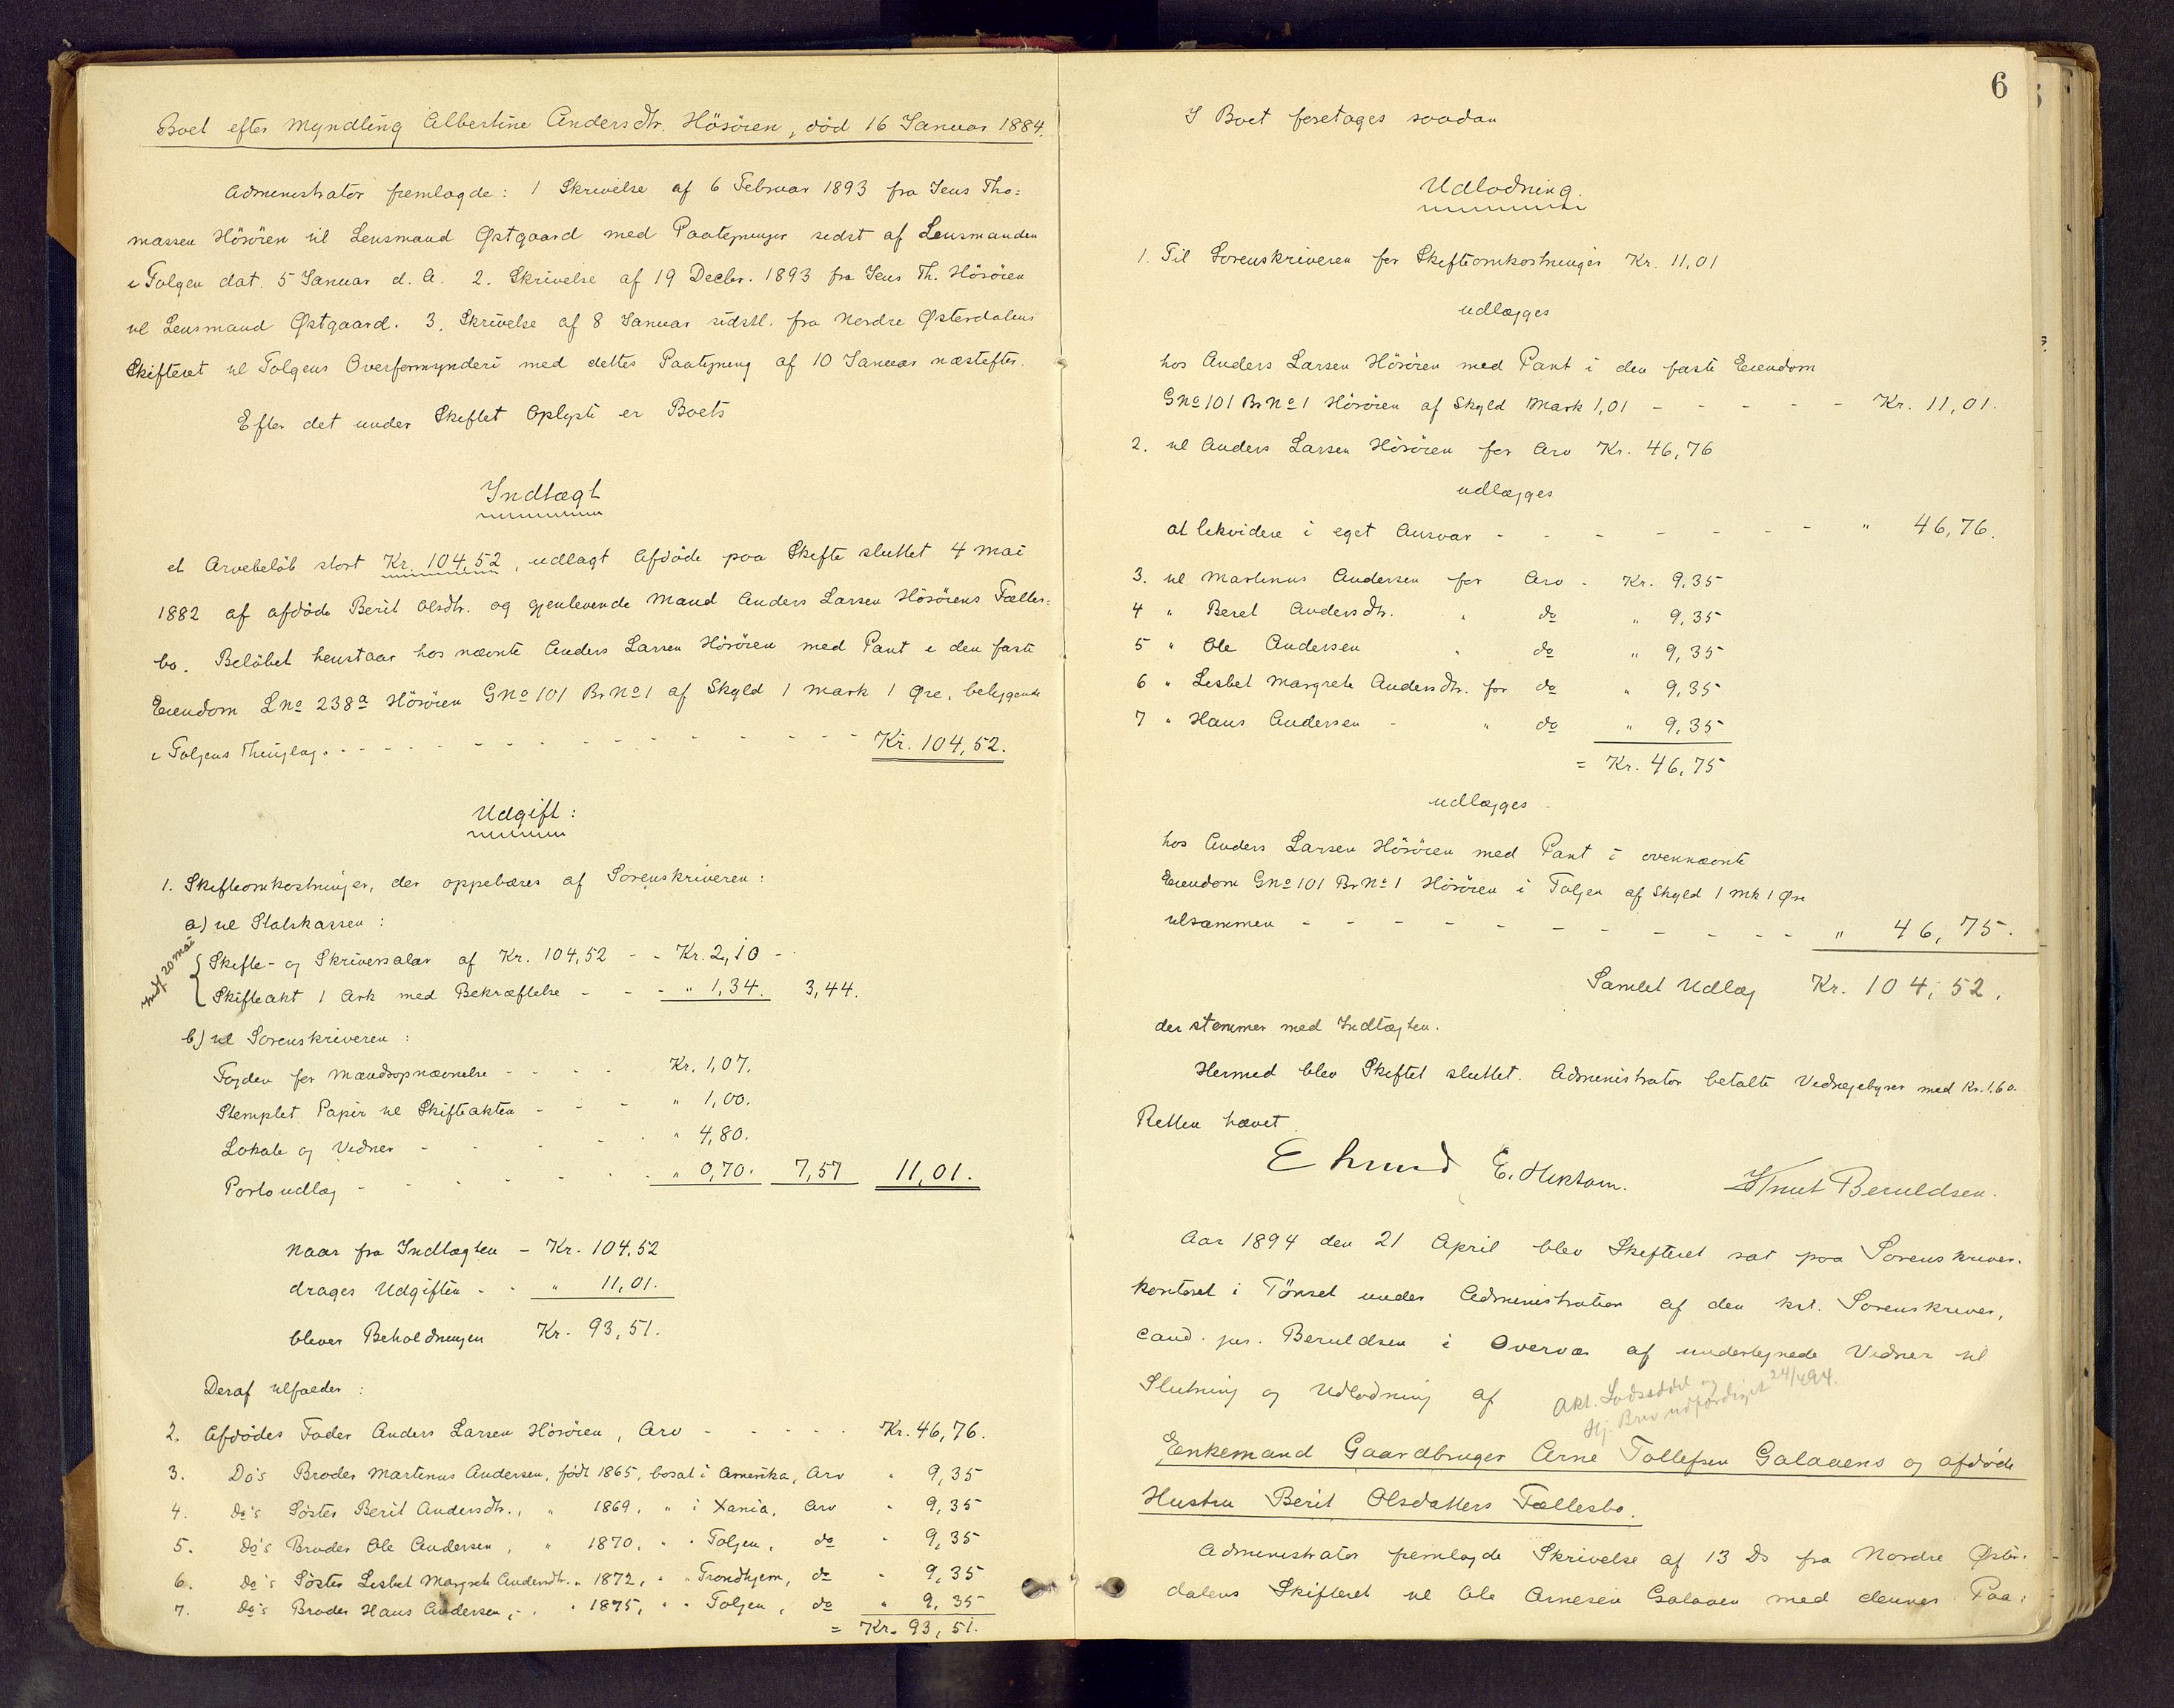 Boet efter Myndling Albertine Andersdtr. Hösöien, död 16 Januar 1884.
Administrator fremlagde: 1 Skrivelse af 6 Februar 1893 fra Jens Tho=
massen Hösöien til Lensmand Østgaard med Paategninger sidst af Lensmanden
i Tolgen dat. 5 Januar d. A. 2. Skrivelse af 19 Decbr. 1893 fra Jens Th. Hösöien
til Lensmand Østgaard. 3. Skrivelse af 8 Januar sidstl. fra Nordre Østerdalens
Skifteret til Tolgens Overformynderi med dettes Paategning af 10 Januar næstefter.
Efter det under Skiftet Oplyste er Boets
Indtægt
et Arvebelöb stort Kr. 104,52, udlagt Afdöde paa Skifte sluttet 4 Mai
1882 af afdöde Berit Olsdtr. og gjenlevende Mand Anders Larsen Hösöiens Fælles=
bo. Belöbet henstaar hos nævnte Anders Larsen Hösöien med Pant i den faste
Eiendom LNo 238a Hösöien GNo 101 BrNo 1 af Skyld 1 Mark 1 Øre, beliggende
i Tolgens Thinglag. - - - - - - - - - - Kr. 104,52.
Udgift:
1. Skifteomkostninger, der oppebæres af Sorenskriveren:
a) til Statskassen:
Indf. 20 Mai
Skifte- og Skriversalær af Kr. 104,52 - - Kr. 2,10 -
Skifteakt 1 Ark med Bekræftelse - - - " 1,34. 3,44.
b) til Sorenskriveren:
Fogden for Mændsopnævnelse - - - - Kr. 1,07.
Stemplet Papir til Skifteakten - - - " 1,00.
Lokale og Vidner - - - - " 4,80.
Portoudlæg - - - - - " 0,70. 7,57 11,01.
Naar fra Indtægten - Kr. 104,52
drages Udgiften - - " 11,01.
bliver Beholdningen Kr. 93,51.
Deraf tilfalder:
2. Afdödes Fader Anders Larsen Hösöien, Arv - - - - - Kr. 46,76.
3. Do's Broder Martinus Andersen, født 1865, bosat i Amerika, Arv " 9,35
4. Do's Söster Berit Andersdtr., " 1869, " i Xania, Arv " 9,35
5. Do's Broder Ole Andersen, " 1870, " " Tolgen, do " 9,35
6. Do's Söster Lisbet Margrete Andersdtr. " 1872, " " Trondhjem, do " 9,35
7. Do's Broder Hans Andersen, - " 1875, " " Tolgen, do " 9,35
= Kr. 93,51.
6
I Boet foretages saadan
Udlodning.
1. Til Sorenskriveren for Skifteomkostninger Kr. 11,01
udlægges
hos Anders Larsen Hösöien med Pant i den faste Eiendom
GNo 101 BrNo 1 Hösöien af Skyld Mark 1,01 - - - - - Kr. 11,01.
2. til Anders Larsen Hösöien for Arv Kr. 46,76
udlægges
at likvidere i eget Ansvar - - - - - - - " 46,76.
3. til Martinus Andersen for Arv - Kr. 9,35
4 " Beret Andersdtr. " do " 9,35
5 " Ole Andersen " do " 9,35
6 " Lisbet Margrete Andersdtr. for do " 9,35
7 " Hans Andersen - " do " 9,35
= Kr. 46,75
udlægges -
hos Anders Larsen Hösöien med Pant i ovennævnte
Eiendom GNo 101 BrNo 1 Hösöien i Tolgen af Skyld 1 Mk 1 Øre
tilsammen - - - - - - - - - - - " 46,75.
Samlet Udlæg Kr. 104,52.
der stemmer med Indtægten.
Hermed blev Skiftet sluttet. Administrator betalte Vidnegebyrer med Kr. 1,60.
Retten hævet.
E. Hektoen. Knut Beruldsen.
Aar 1894 den 21 April blev Skifteret sat paa Sorenskriver-
kontoret i Tönset under Administration af den kst. Sorenskriver,
cand. jur. Beruldsen i Overvær af undertegnede Vidner til
Slutning og Udlodning af
Akt. Lodseddel og
Hj. Brev udfærdiget 24/4 94.
Enkemand Gaardbruger Arne Tollefsen Galaaens og afdöde
Hustru Berit Olsdatters Fællesbo.
Administrator fremlagde Skrivelse af 13 Ds fra Nordre Øster-
dalens Skifteret til Ole Arnesen Galaaen med dennes Paa-